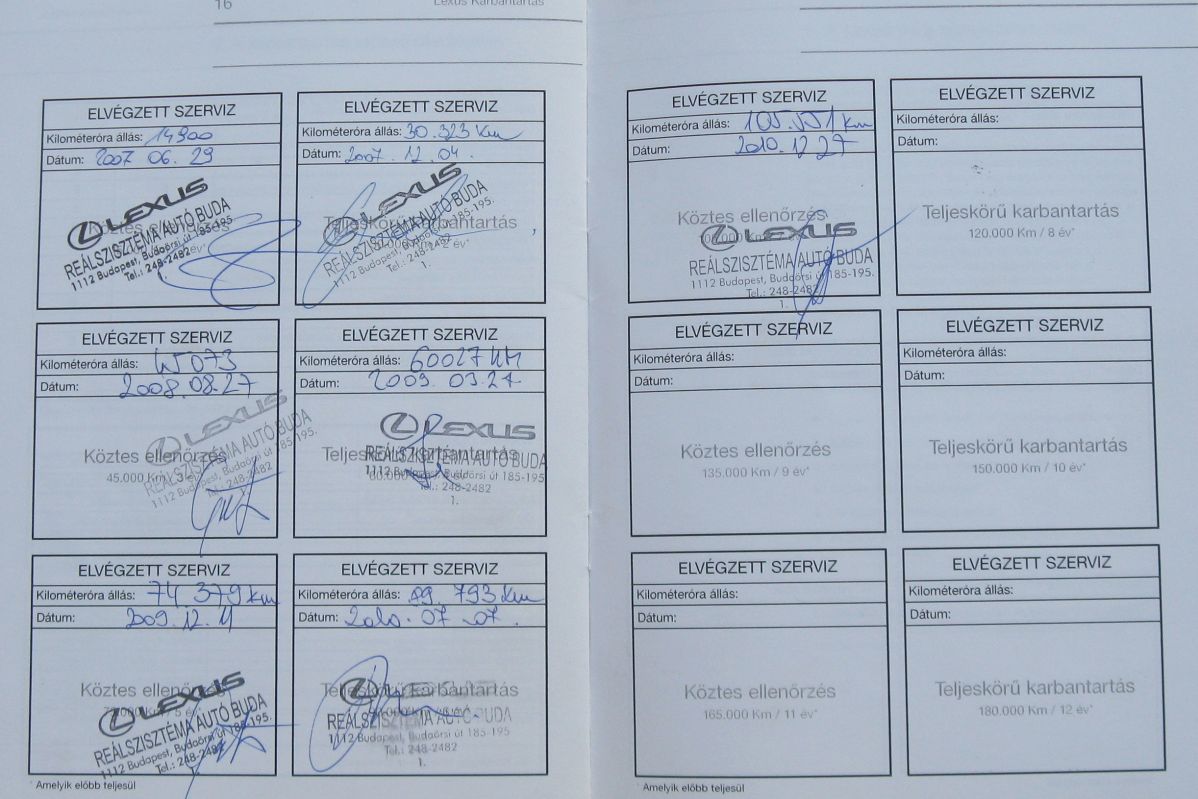 16
Lexus Karbantartás
ELVÉGZETT SZERVIZ
Kilométeróra állás: 14900
Dátum: 2007.06.29
Köztes ellenőrzés
LEXUS
REÁLSZISZTÉMA AUTÓ BUDA
1112 Budapest, Budaörsi út 185-195.
Tel.: 248-2482
1.
ELVÉGZETT SZERVIZ
Kilométeróra állás: 30.323 Km
Dátum: 2007.12.04.
Teljeskörű karbantartás
LEXUS
REÁLSZISZTÉMA AUTÓ BUDA
1112 Budapest, Budaörsi út 185-195.
Tel.: 248-2482
1.
ELVÉGZETT SZERVIZ
Kilométeróra állás:
Dátum: 2008.08.27
Köztes ellenőrzés
45.000 Km / 3 év*
LEXUS
REÁLSZISZTÉMA AUTÓ BUDA
1112 Budapest, Budaörsi út 185-195.
Tel.: 248-2482
1.
ELVÉGZETT SZERVIZ
Kilométeróra állás: 60027 KM
Dátum: 2009.03.27
Teljeskörű karbantartás
LEXUS
REÁLSZISZTÉMA AUTÓ BUDA
1112 Budapest, Budaörsi út 185-195
Tel.: 248-2482
1.
ELVÉGZETT SZERVIZ
Kilométeróra állás: 74 379 km
Dátum: 2009.12.11
Köztes ellenőrzés
LEXUS
REÁLSZISZTÉMA AUTÓ BUDA
1112 Budapest, Budaörsi út 185-195.
Tel.: 248-2482
1.
ELVÉGZETT SZERVIZ
Kilométeróra állás: 89.793 Km
Dátum: 2010.07.07.
Teljeskörű karbantartás
LEXUS
REÁLSZISZTÉMA AUTÓ BUDA
1112 Budapest, Budaörsi út 185-195
Tel.: 248-2482
1.
* Amelyik előbb teljesül
ELVÉGZETT SZERVIZ
Kilométeróra állás: 105.551 km
Dátum: 2010.12.27
Köztes ellenőrzés
LEXUS
REÁLSZISZTÉMA AUTÓ BUDA
1112 Budapest, Budaörsi út 185-195.
Tel.: 248-2482
1.
ELVÉGZETT SZERVIZ
Kilométeróra állás:
Dátum:
Teljeskörű karbantartás
120.000 Km / 8 év*
ELVÉGZETT SZERVIZ
Kilométeróra állás:
Dátum:
Köztes ellenőrzés
135.000 Km / 9 év*
ELVÉGZETT SZERVIZ
Kilométeróra állás:
Dátum:
Teljeskörű karbantartás
150.000 Km / 10 év*
ELVÉGZETT SZERVIZ
Kilométeróra állás:
Dátum:
Köztes ellenőrzés
165.000 Km / 11 év*
ELVÉGZETT SZERVIZ
Kilométeróra állás:
Dátum:
Teljeskörű karbantartás
180.000 Km / 12 év*
* Amelyik előbb teljesül